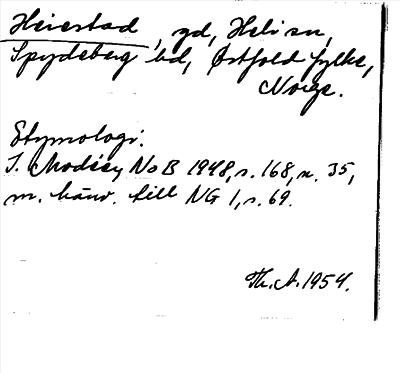 Heiestad, gd, Heli sn,
Spydeberg hd, Østfold fylke,
Norge.
Etymologi:
I. Modéer NoB 1948, s. 168, n. 35,
m. hänv. till NG 1, s. 69.
Th. A. 1954.